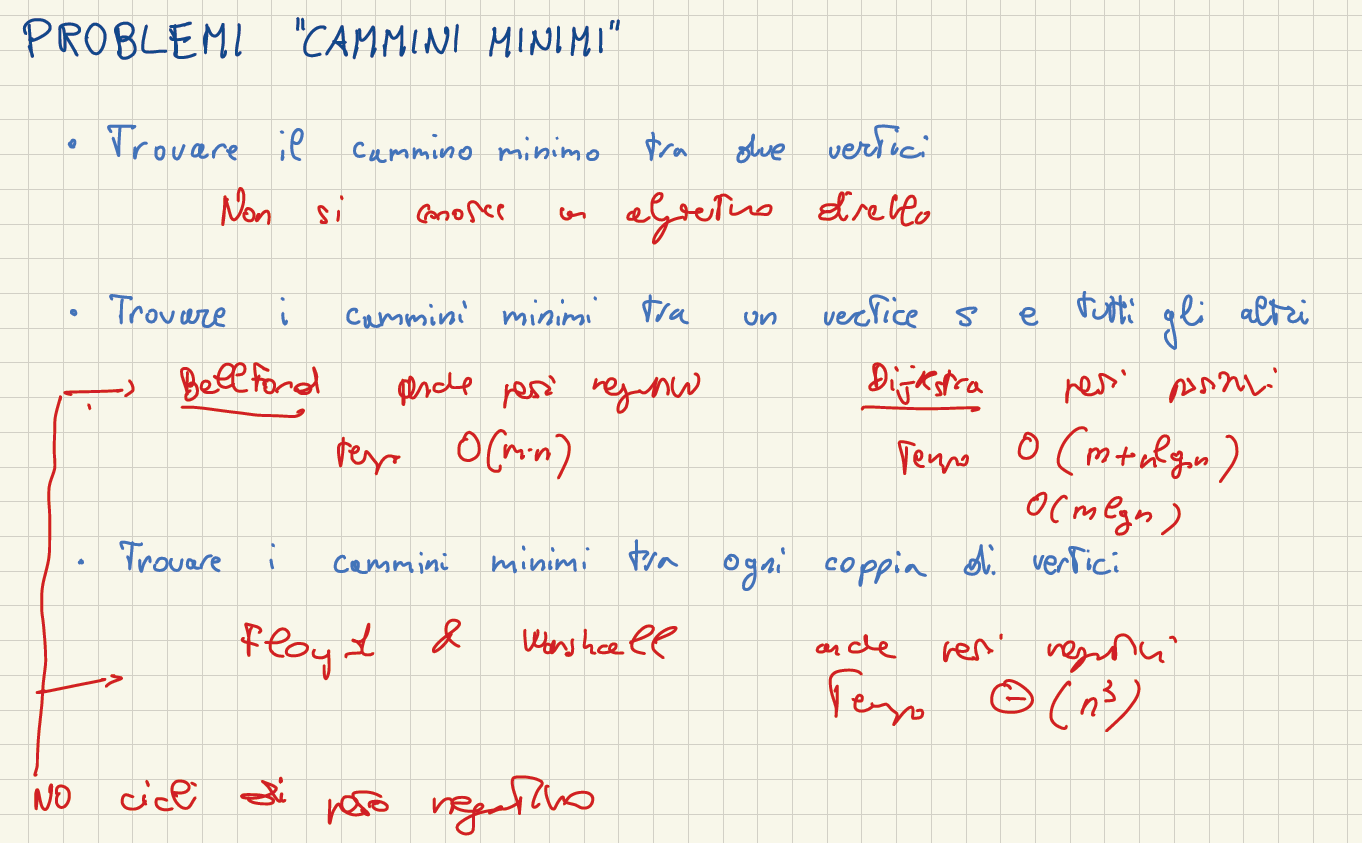 PROBLEMI "CAMMINI MINIMI"
• Trovare il cammino minimo tra due vertici
Non si conosce un algoritmo diretto
• Trovare i cammini minimi tra un vertice s e tutti gli altri
BellFord anche pesi negativi
Dijkstra pesi positivi
Tempo O(m·n)
Tempo O(m+nlgn)
O(mlgn)
• Trovare i cammini minimi tra ogni coppia di vertici
Floyd & Warshall anche pesi negativi
Tempo Θ(n³)
NO cicli di peso negativo